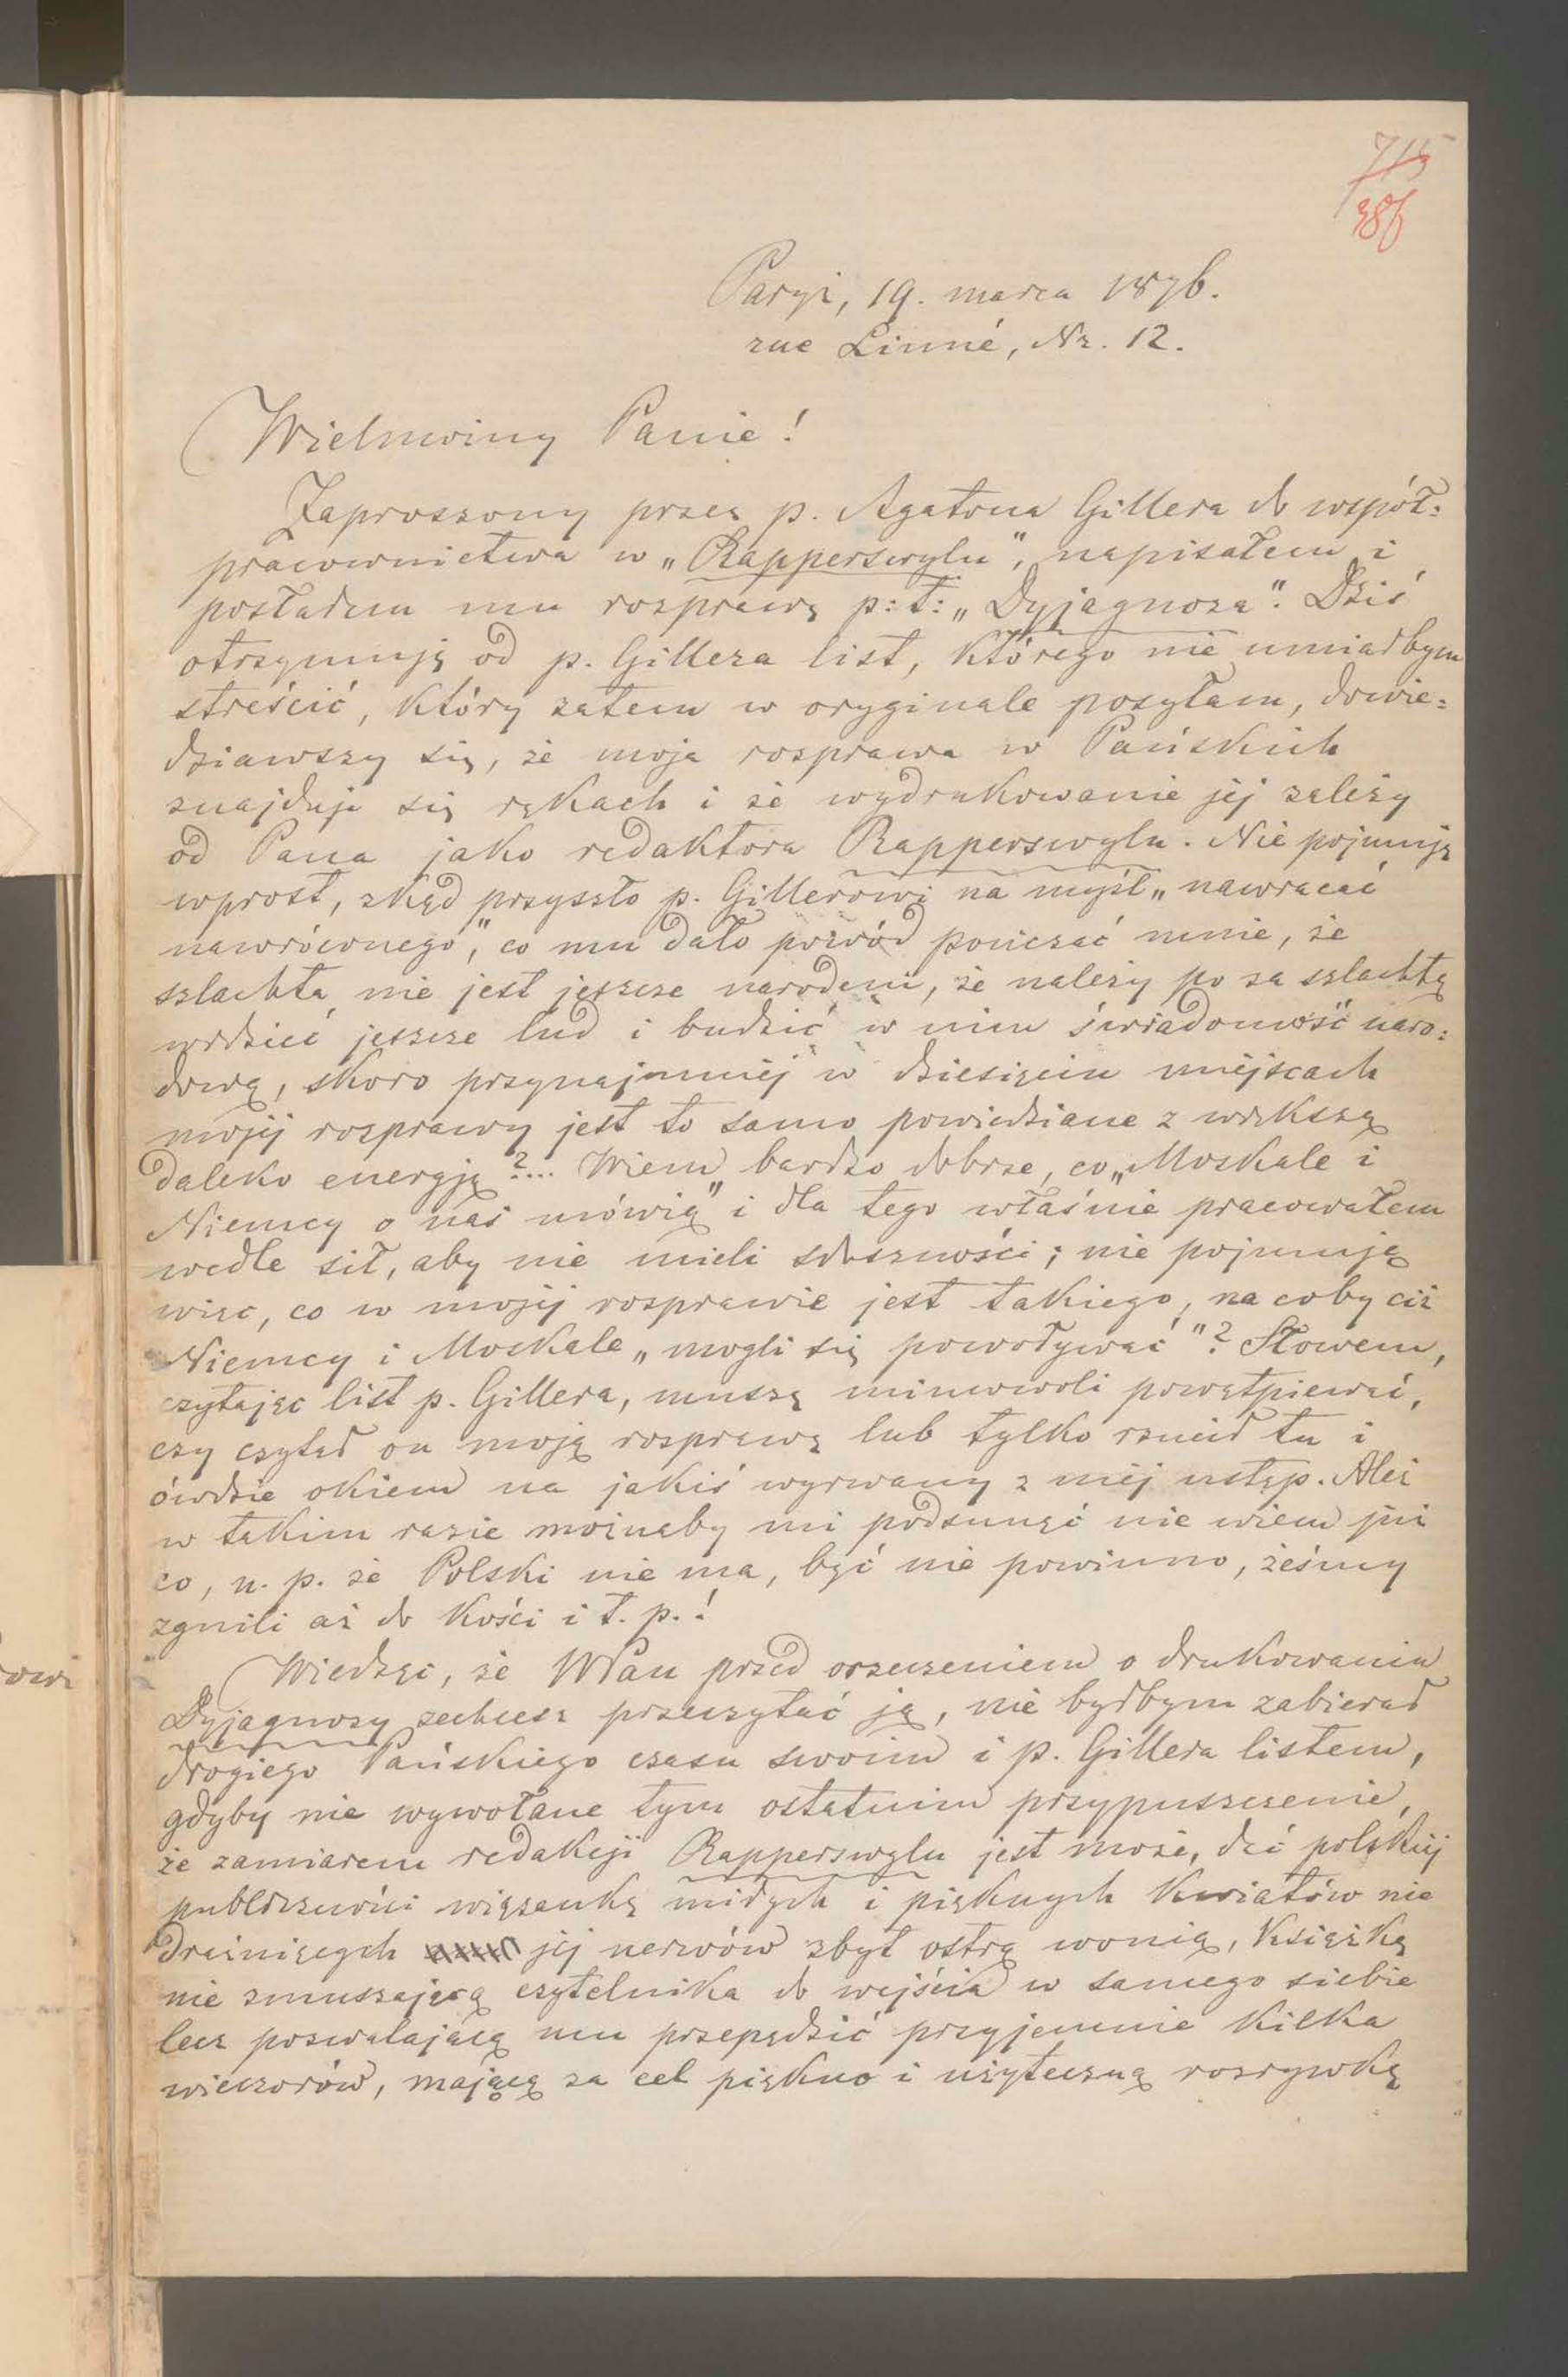 715
386
Paryż, 19. marca 1876.
rue Linné, Nr. 12.
Wielmożny Panie!
Zaproszony przez p. Agatona Gillera do współ=
pracownictwa w „Rapperswylu", napisałem i
posłałem mu rozprawę p:t: „Dyjagnoza". Dziś
otrzymuję od p. Gillera list, którego nie umiałbym
streścić, który zatem w oryginale posyłam, dowie=
dziawszy się, że moja rozprawa w Pańskich
znajduje się rękach i że wydrukowanie jej zależy
od Pana jako redaktora Rapperswylu. Nie pojmuję
wprost, skąd przyszło p. Gillerowi na myśl „nawracać
nawróconego", co mu dało powód pouczać mnie, że
szlachta nie jest jeszcze narodem, że należy po za szlachtą
widzieć jeszcze lud i budzić w nim świadomość naro=
dową, skoro przynajmniej w dziesięciu miejscach
mojej rozprawy jest to samo powiedziane z większą
daleko energją?... Wiem bardzo dobrze, co „Moskale i
Niemcy o nas mówią" i dla tego właśnie pracowałem
wedle sił, aby nie mieli słuszności; nie pojmuję
więc, co w mojej rozprawie jest takiego, na coby ciż
Niemcy i Moskale „mogli się powoływać"? Słowem,
czytając list p. Gillera, muszę mimowoli powątpiewać,
czy czytał on moją rozprawę lub tylko rzucił tu i
ówdzie okiem na jakiś wyrwany z niej ustęp. Ależ
w takim razie możnaby mi podsunąć nie wiem już
co, n. p. że Polski nie ma, być nie powinno, żeśmy
zgnili aż do kości i t. p.!
Wiedząc, że WPan przed orzeczeniem o drukowaniu
Dyjagnozy zechcesz przeczytać ją, nie byłbym zabierał
drogiego Pańskiego czasu swoim i p. Gillera listem,
gdyby nie wywołane tym ostatnim przypuszczenie,
że zamiarem redakcji Rapperswylu jest może, dać polskiej
publiczności wiązankę miłych i pięknych kwiatów nie
drażniących jej nerwów zbyt ostrą wonią, książkę
nie zmuszającą czytelnika do wejścia w samego siebie
lecz pozwalającą mu przepędzić przyjemnie kilka
wieczorów, mającą za cel piękno i użyteczną rozrywkę